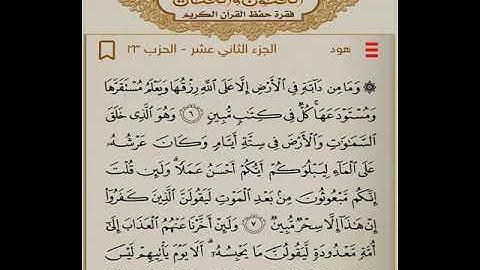 فقرة حفظ القرآن الكريم
هود
الجزء الثاني عشر - الحزب ٢٣
۞ وَمَا مِن دَآبَّةٍ فِي ٱلْأَرْضِ إِلَّا عَلَى ٱللَّهِ رِزْقُهَا وَيَعْلَمُ مُسْتَقَرَّهَا
وَمُسْتَوْدَعَهَا ۚ كُلٌّ فِي كِتَٰبٍ مُّبِينٍ ٦ وَهُوَ ٱلَّذِي خَلَقَ
ٱلسَّمَٰوَٰتِ وَٱلْأَرْضَ فِي سِتَّةِ أَيَّامٍ وَكَانَ عَرْشُهُۥ
عَلَى ٱلْمَآءِ لِيَبْلُوَكُمْ أَيُّكُمْ أَحْسَنُ عَمَلًا ۗ وَلَئِن قُلْتَ
إِنَّكُم مَّبْعُوثُونَ مِنۢ بَعْدِ ٱلْمَوْتِ لَيَقُولَنَّ ٱلَّذِينَ كَفَرُوٓا۟
إِنْ هَٰذَآ إِلَّا سِحْرٌ مُّبِينٌ ٧ وَلَئِنْ أَخَّرْنَا عَنْهُمُ ٱلْعَذَابَ إِلَىٰٓ
أُمَّةٍ مَّعْدُودَةٍ لَّيَقُولُنَّ مَا يَحْبِسُهُۥٓ ۗ أَلَا يَوْمَ يَأْتِيهِمْ لَيْسَ